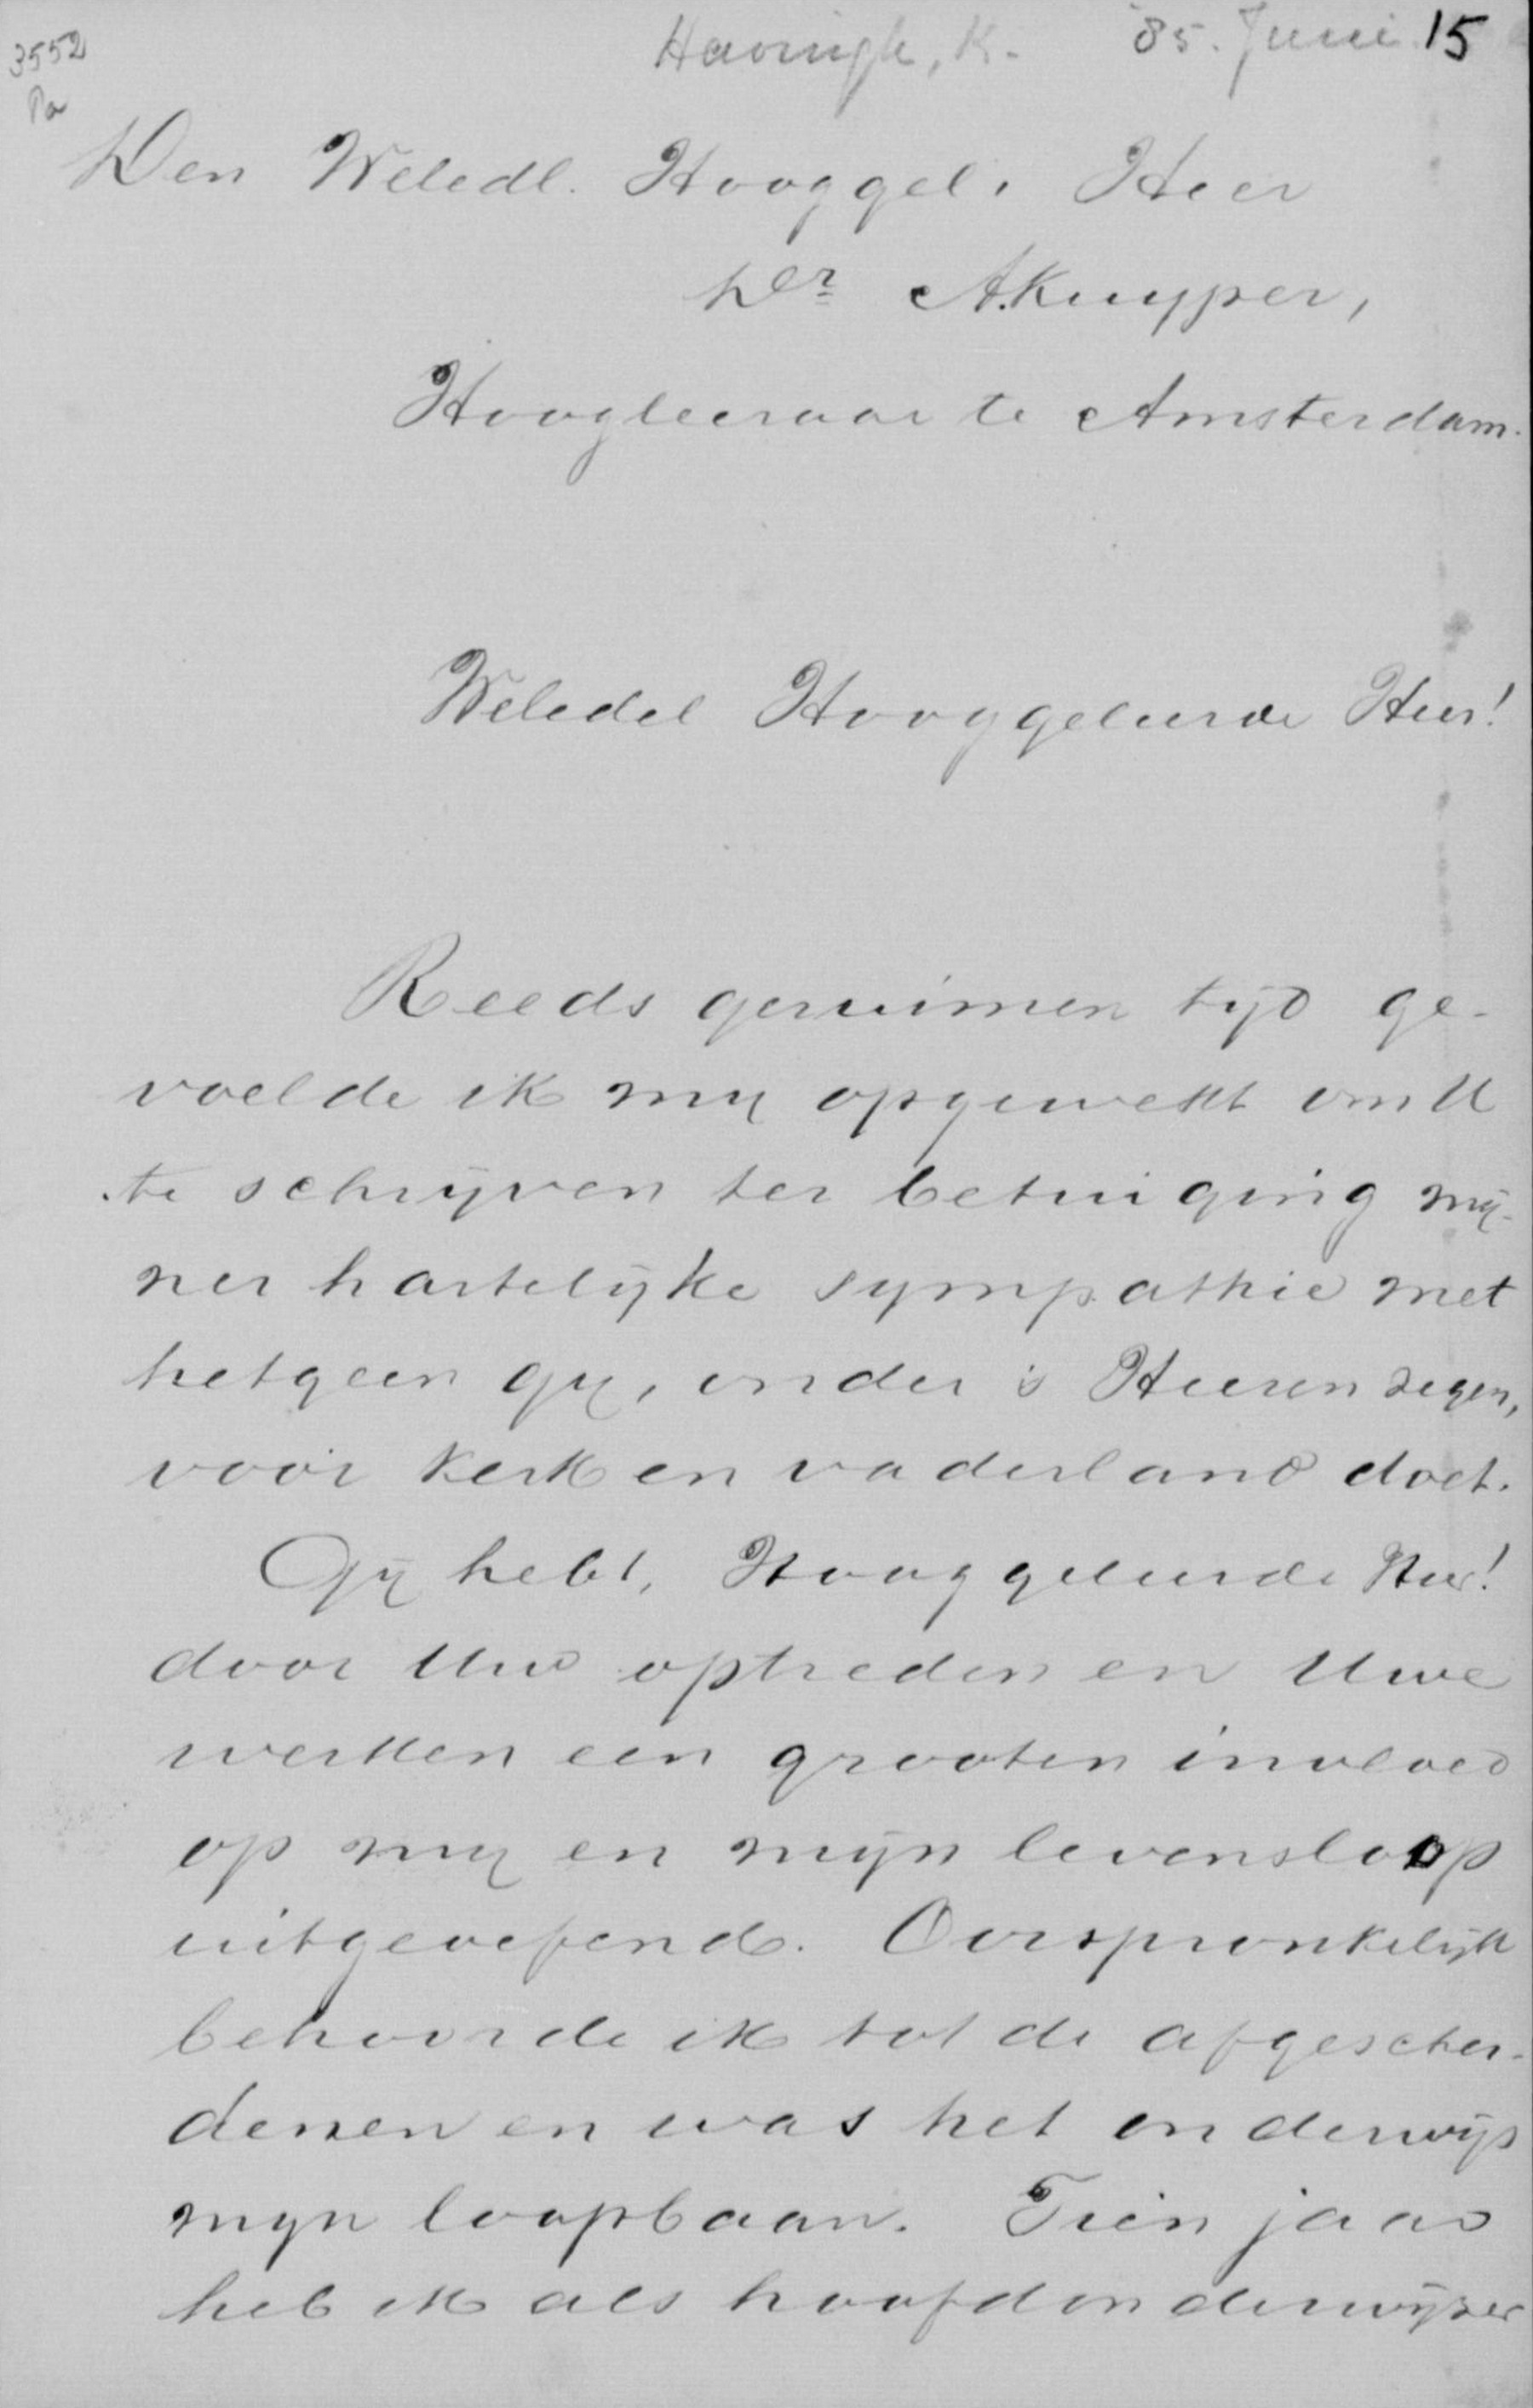 3552
Pa
Havingh, K. 85. Juni 15
Den Weledl. Hooggel. Heer
Dr A. Kuyper,
Hoogleeraar te Amsterdam.
Weledel Hooggeleerde Heer!
Reeds geruimen tijd ge-
voelde ik mij opgewekt om U
te schrijven ter betuiging mij-
ner hartelijke sympathie met
hetgeen gij, onder 's Heeren zegen,
voor kerk en vaderland doet.
Gij hebt, Hooggeleerde Heer!
door Uw optreden en Uwe
werken een grooten invloed
op mij en mijn levensloop
uitgeoefend. Oorspronkelijk
behoorde ik tot de afgeschei-
denen en was het onderwijs
mijn loopbaan. Tien jaar
heb ik als hoofdonderwijzer